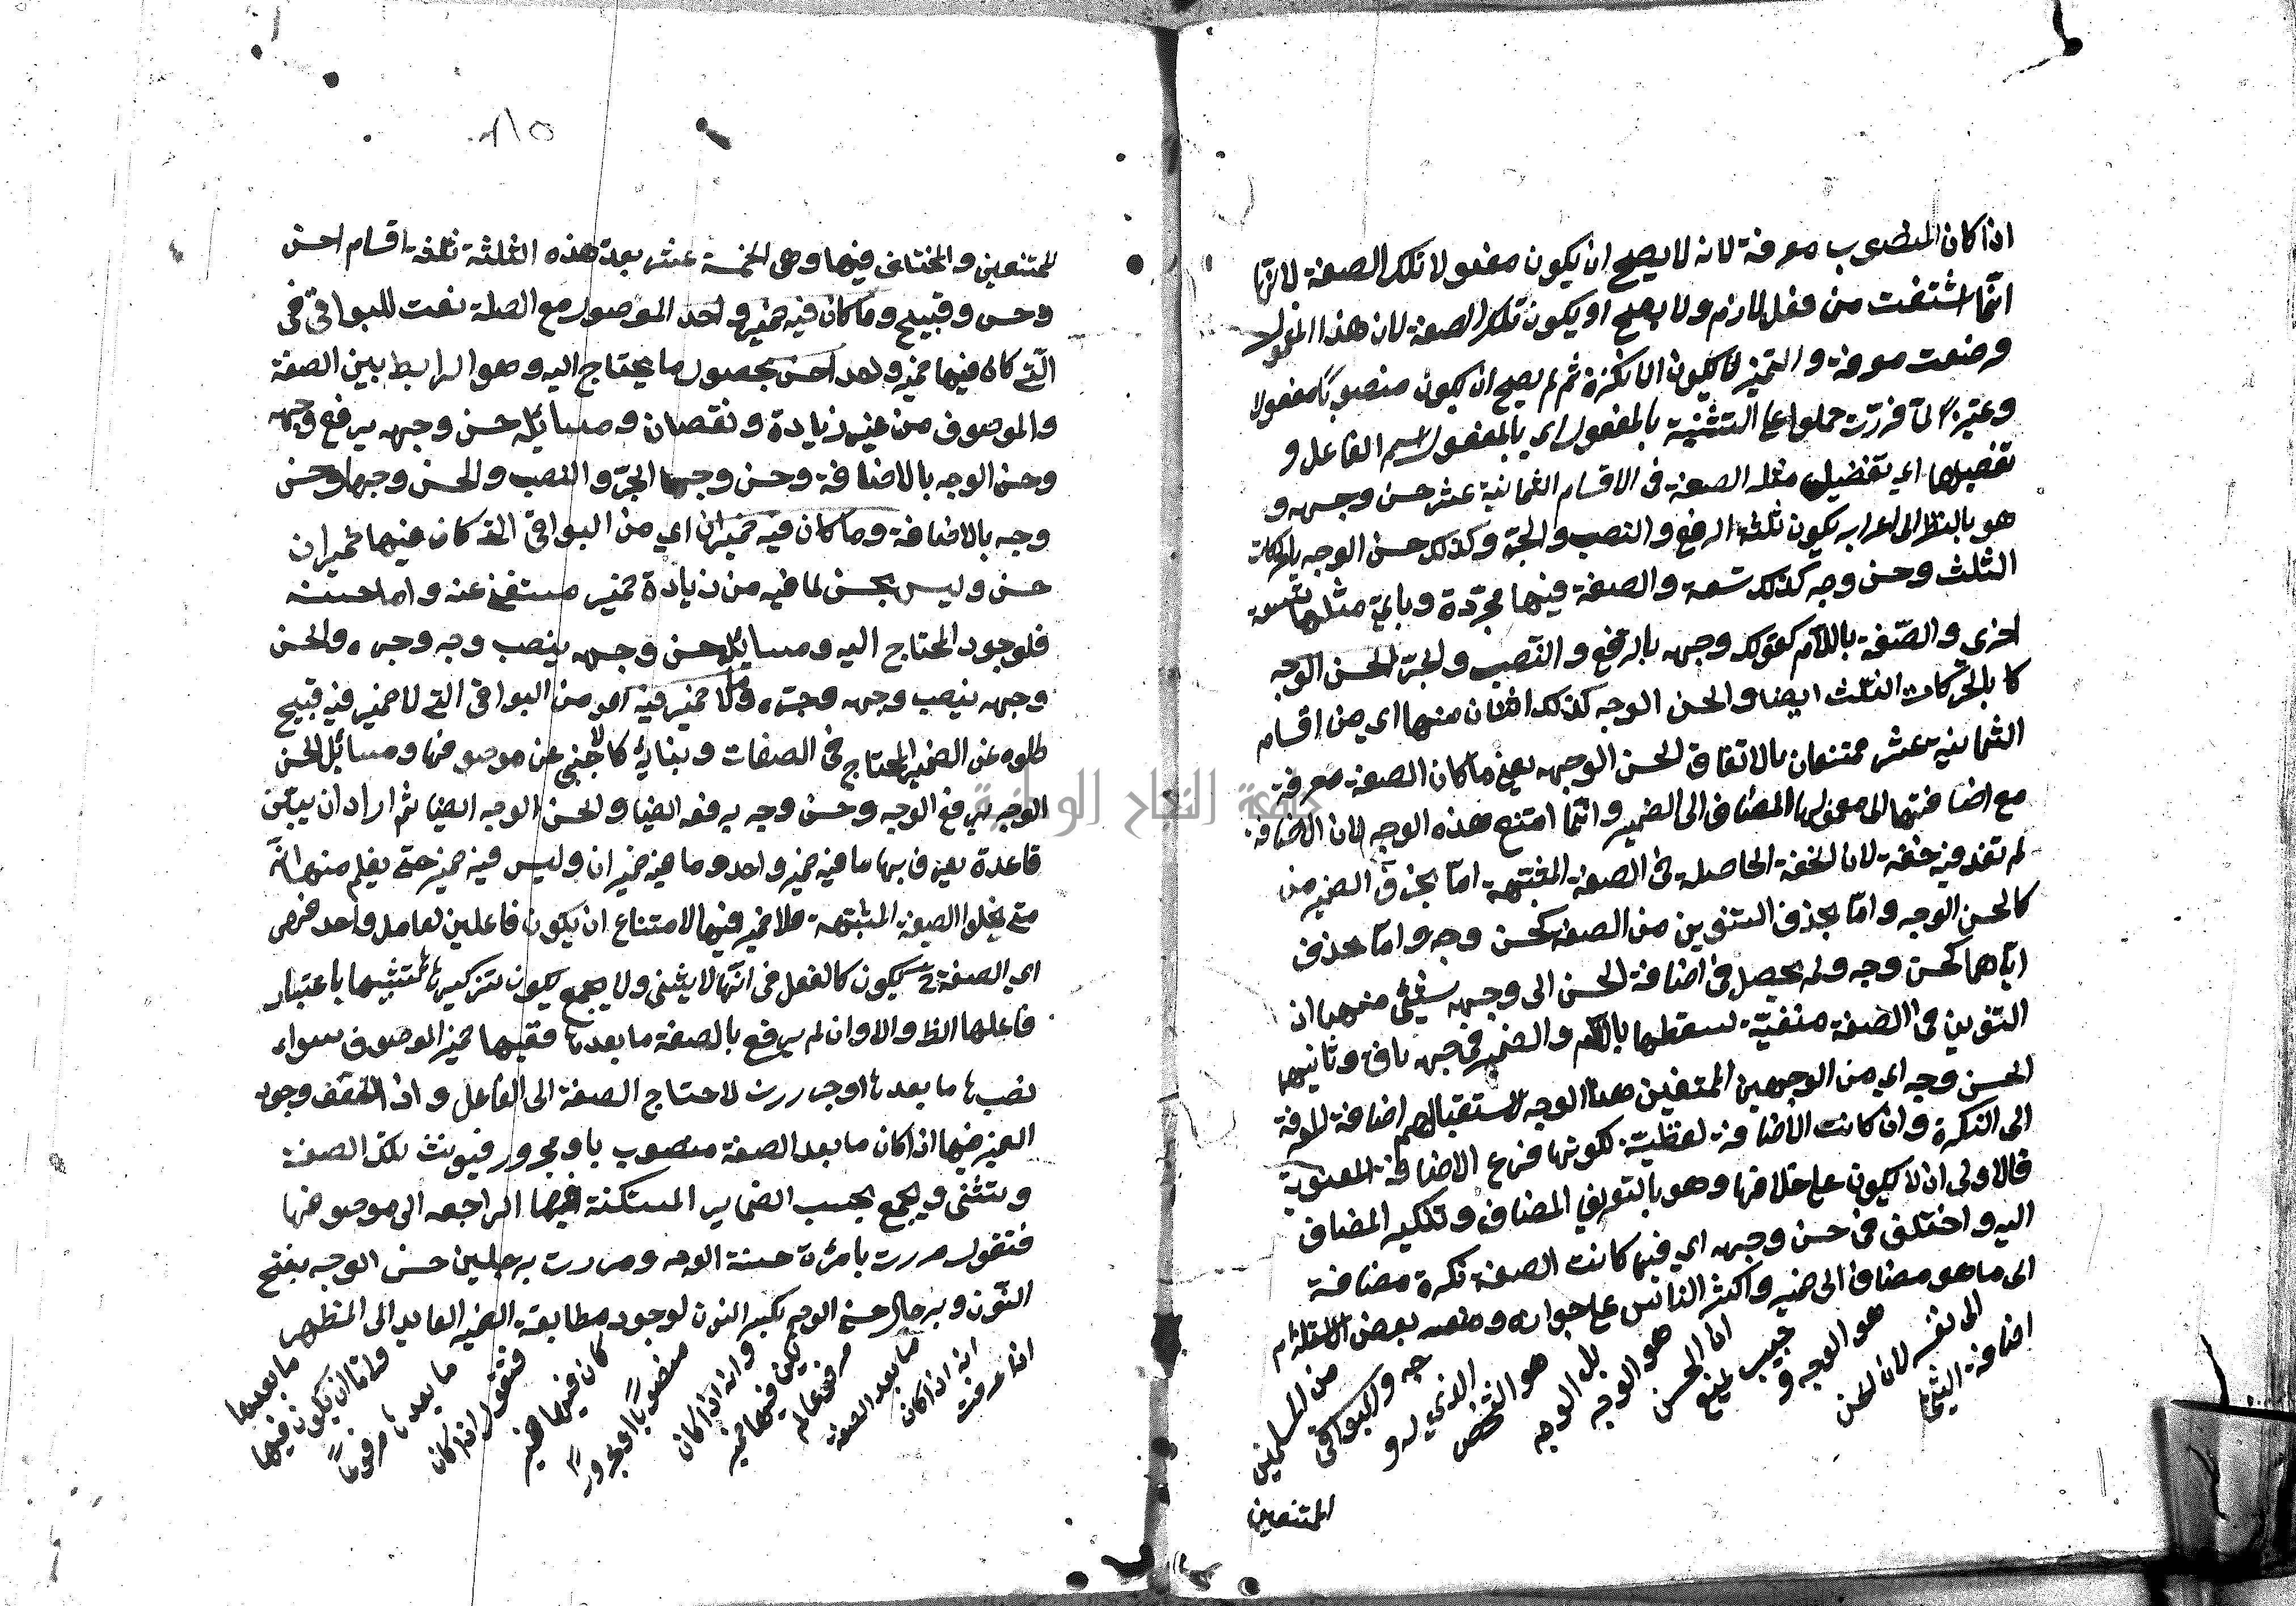 اذا كان المنصوب معرفة لانه لا يصح ان يكون مفعولا لتلك الصفة لانها
انما اشتقت من فعل لازم ولا يصح او يكون تلك الصفة لان هذا المفعول
وضعت معرفة والتميز لا يكون الا نكرة ثم لم يصح ان يكون منصوبا مفعولا
وتميزا لما قررت حملوا على التشبيه بالمفعول اي بالمفعول اسم الفاعل و
تفصيلها اي تفصيل مثله الصفة فى الاقسام الثمانية عشر حسن وجهه و
هو بالنظر الى اعرابه يكون ثلثة الرفع والنصب والجر وكذلك حسن الوجه بالحركات
الثلث وحسن وجه كذلك تسعة والصفة فيها مجردة وباقي مثلها تسعة
اخرى والصفة باللام كقولك وجهه بالرفع والنصب والجر الحسن الوجه
كا بالحركات الثلث ايضا والحسن الوجه كذلك اثنان منها اي من اقسام
الثمانية عشر ممتنعان بالاتفاق الحسن الوجهه يعني ما كان الصفة معرفة
مع اضافتها الى معمولها المضاف الى الضمير وانما امتنع هذه الوجه لان الاضافة
لم تفد فيه خفة لان الخفة الحاصلة فى الصفة المشبهة اما بحذف الضمير من
كالحسن الوجه واما بحذف التنوين من الصفة كحسن وجه واما بحذف
اياهما كحسن وجه ولم يحصل فى اضافة الحسن الى وجهه شيئى منهما اذ
التنوين فى الصفة منفية لسقطها باللام والضمير فى وجهه باق وثانيهما
الحسن وجه اي من الوجهين الممتنعين هذا الوجه لاستقبالهم اضافة المعرفة
الى النكرة وان كانت الاضافة لفظية لكونها فرع الاضافة المعنوية
فالاولى ان لا يكون على خلافها وهو بالتعريف المضاف وتنكير المضاف
اليه واختلف فى حسن وجهه اي فيما كانت الصفة نكرة مضافة
الى ما هو مضاف الى ضميره واكثر الناس على جوازه ومنعه بعض الاستلزام
اضافة الشيئ
الى نفسه لان الحسن
هو الوجه و
جيب لمنع
ان الحسن
هو الوجه
بل الوجه
هو الشخص
الذي له و
جه والبواقى
من المسلمين
الممتنعين
الممتنعين والمختلف فيها وهى الخمسة عشر بعد هذه الثلثة ثلثة اقسام احسن
وحسن وقبيح وما كان فيه ضمير واحد الموصول مع الصلة نعت للبواقى فى
التي كان فيها ضمير واحد احسن بحصول ما يحتاج اليه وهو الرابط بين الصفة
والموصوف من غير زيادة ونقصان ومسائله حسن وجهه برفع وجهه
وحسن الوجه بالاضافة وحسن وجها الجر والنصب والحسن وجها وحسن
وجه بالاضافة وما كان فيه ضميران اي من البواقى التى كان فيها ضميران
حسن وليس بحسن لما فيه من زيادة ضمير مستغنى عنه واما حسنه
فلوجود المحتاج اليه ومسايله حسن وجهه بنصب وجه وجره والحسن
وجهه بنصب وجهه وجره وما لا ضمير فيه اى من البواقى التي لا ضمير فيه قبيح
خلوه عن الضمير المحتاج فى الصفات وبنايه كالاجنبي عن موصوفها ومسائل الحسن
الوجه برفع الوجه وحسن وجه برفعه ايضا والحسن الوجه ايضا ثم اراد ان يبين
قاعدة يعرف بها ما فيه ضمير واحد وما فيه ضميران وليس فيه ضمير حتى يعلم منها انه
متى يخلوا الصفة المشبهة فلا ضمير فيها لامتناع ان يكون فاعلين لعامل واحد فهى
اي الصفة ح يكون كالفعل فى انها لا يثنى ولا يجمع يكون تذكيرها تثنيها باعتبار
فاعلها الظ والا وان لم يرفع بالصفة ما بعدها ففيها ضمير الموصوف سواء
نصب ما بعدها او جررت لاحتاج الصفة الى الفاعل واذا تحقق وجود
الضمير فيها اذا كان ما بعد الصفة منصوب با ومجرور فيونث تلك الصفة
ويتثنى ويجمع بحسب الضماير المستكنة فيها الراجعه الى موصوفها
فتقول مررت بامرأة حسنة الوجه ومررت برجلين حسن الوجه بفتح
النون وبرجال حسن الوجه بكسر النون لوجود مطابقة الضمير العايد الى المظهر
اذا عرفت
انه اذا كان
ما بعد الصفة
مرفوعا لم
يكن فيها ضمير
وانه اذا كان
منصوبا او مجرورا
كان فيها ضمير
فتقول اذا كان
ما بعدها مرفوعا
فاما ان يكون فيها
ما بعدها